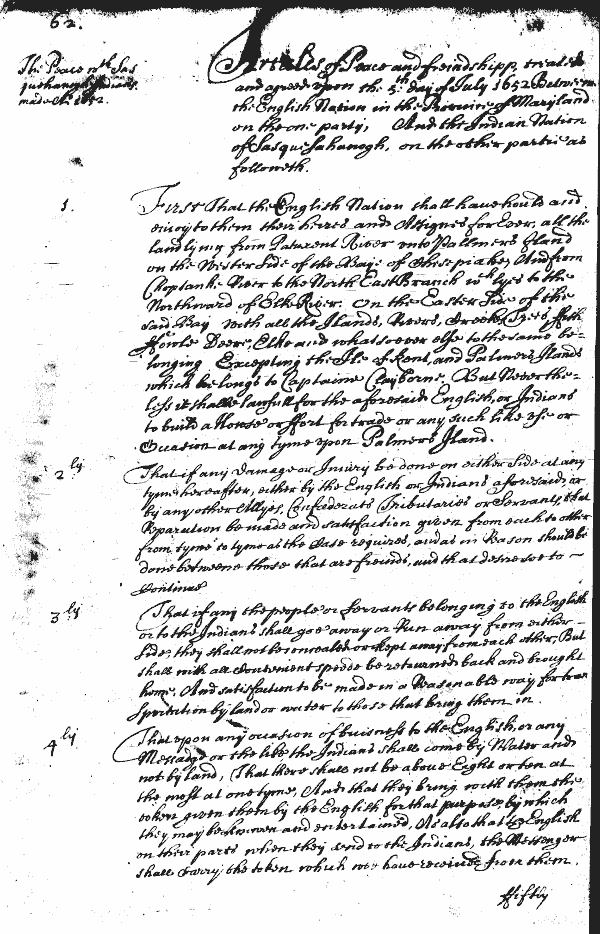 62.
The Peace wth Sus
quehanough Indians
made Ao. 1652.
Articles of Peace and freindshipp treated
and agreed upon the 5th day of July 1652 Betweene
the English Nation in the Province of Maryland
on the one party, And the Indian Nation
of Sasquesahanogh, on the other partie as
followeth.
1. First That the English Nation shall have hould and
enioy to them their heires and Assignes for Ever, all the
land lying from Patuxent River unto Pallmers Iland
on the Wester side of the Baye of Chesepiake, And from
Choptanke River to the North East Branch wch lyes to the
Northward of Elke River. On the Easter side of the
said Bay with all the Ilands, Rivers, Creeks, Trees, ffish
ffowle Deere, Elke and whatsoever else to the same be=
longing Excepting the Ile of Kent, and Palmers Ilands
which belongs to Captaine Clayborne, But Neverthe=
less it shalbe lawfull for the aforesaid English, or Indians
to build a House or ffort for trade or any such like use or
Occasion at any tyme upon Palmers Iland.
2ly That if any Damage or Iniury be done on either side at any
tyme hereafter, either by the English or Indians aforesaid, or
by any other Allyes, Confederats Tributaries or Servants, that
Reparation be made and satisfaction given from each to other
from tyme to tyme as the Case requires, and as in Reason should be
done betweene those that are freinds, and that desire soe to
Continue
3ly That if any the people or servants belonging to the English
or to the Indians shall goe away or Run away from either
side, they shall not be concealed or kept away from each other, But
shall with all Convenient speede be returned back and brought
home, And satisfaction to be made in a Reasonable way for tran
sportation by land or water to those that bring them in.
4ly That upon any occasion of buisness to the English, or any
Message or the like the Indians shall come by Water and
not by land, That there shall not be above Eight or ten at
the most at one tyme, And that they bring with them the
token given them by the English for that purpose, by which
they may be knowen and entertained, As also that the English
on their parts when they send to the Indians, the Messenger
shall Carry the token which we have received from them.
ffiftly